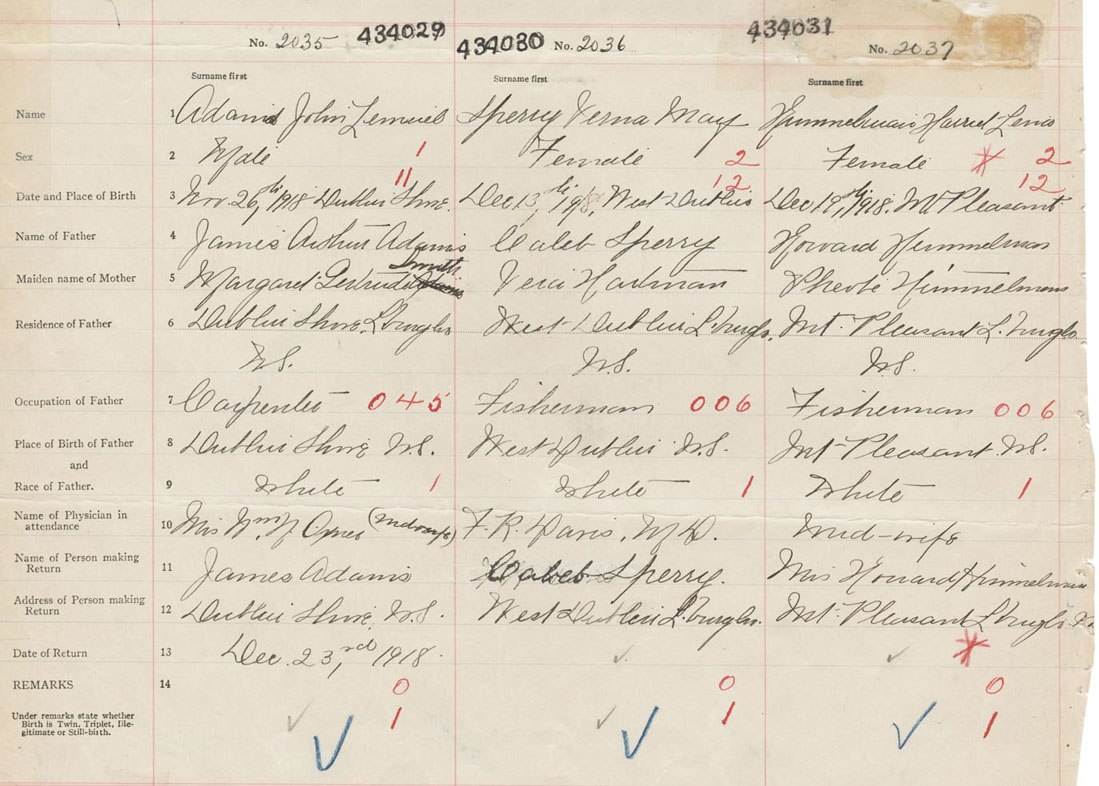 No. 2035 434029 434030 No. 2036 434031 No. 2037
Surname first Surname first Surname first
Name 1 Adams John Lemuel Sperry Verna May Himmelman Harriet Lena
Sex 2 Male 1 Female 2 Female 2
11 12 12
Date and Place of Birth 3 Nov. 26th, 1918 Dublin Shore. Dec 13th, 1918, West Dublin Dec 19th, 1918. Mt Pleasant
Name of Father 4 James Arthur Adams Caleb Sperry Howard Himmelman
Smith
Maiden name of Mother 5 Margaret Gertrude Vera Hartman Pheobe Himmelman
Residence of Father 6 Dublin Shore, L'burg Co. West Dublin L'burg Co. Mt. Pleasant L'burg Co
N.S. N.S. N.S.
Occupation of Father 7 Carpenter 045 Fisherman 006 Fisherman 006
Place of Birth of Father 8 Dublin Shore N.S. West Dublin N.S. Mt Pleasant N.S.
and
Race of Father. 9 White 1 White 1 White 1
Name of Physician in
attendance 10 Mrs Wm. (Midwife) F. R. Davis, M.D. Mid-wife
Name of Person making
Return 11 James Adams Caleb Sperry. Mrs Howard Himmelman
Address of Person making
Return 12 Dublin Shore, N.S. West Dublin L'burg Co. Mt. Pleasant L'burg Co
Date of Return 13 Dec. 23rd, 1918.
REMARKS 14 0 0 0
Under remarks state whether
Birth is Twin, Triplet, Ille-
gitimate or Still-birth. 1 1 1